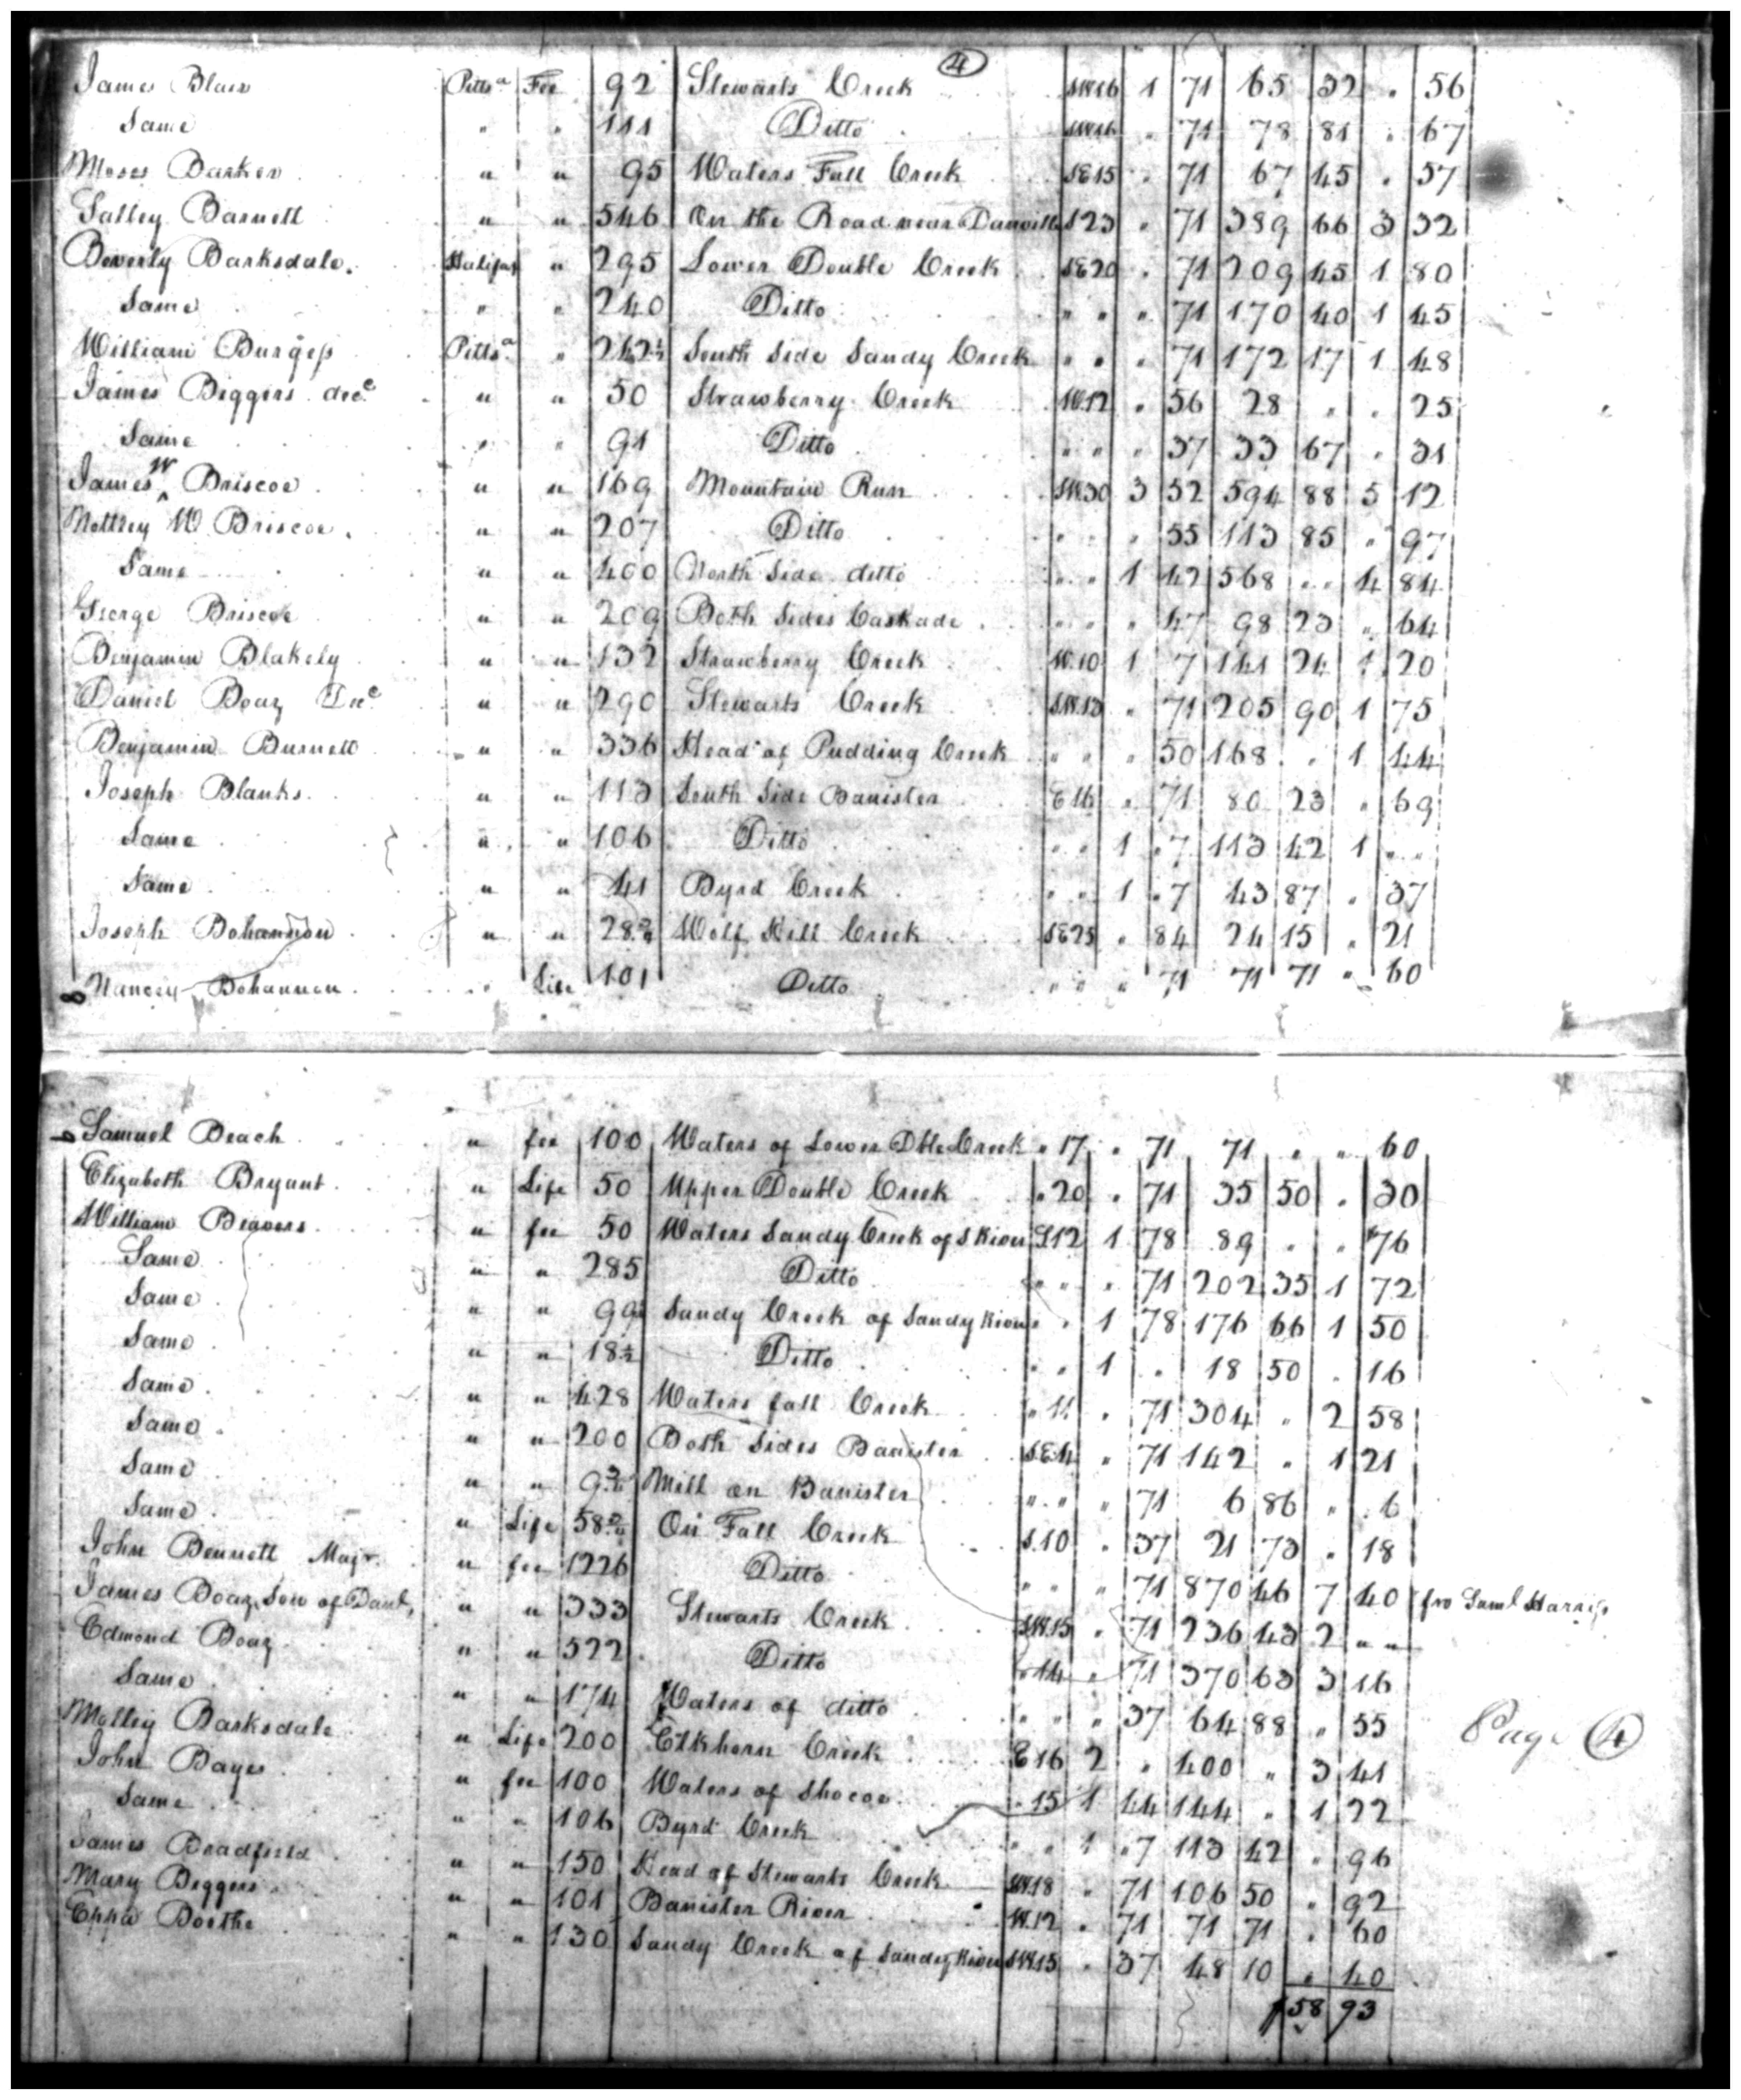 4
James Blair Pittsa Fee 92 Stewarts Creek SW16 1 71 65 32 " 56
Same " " 111 Ditto SW16 " 71 78 81 " 67
Moses Barker " " 95 Waters Fall Creek SE15 " 71 67 45 " 57
Salley Barnett " " 546 On the Road near Danville S23 " 71 389 66 3 32
Beverly Barksdale. Halifax " 295 Lower Double Creek SE20 " 71 209 45 1 80
Same " " 240 Ditto " " " 71 170 40 1 45
William Burgess Pittsa " 242½ South Side Sandy Creek " " " 71 172 17 1 48
James Biggers dece " " 50 Strawberry Creek W.12 " 56 28 " " 25
Same " " 91 Ditto " " " 37 33 67 " 31
James W Briscoe " " 169 Mountain Run SW30 3 52 594 88 5 12
W Briscoe. " " 207 Ditto " " " 55 113 85 " 97
Same " " 400 North Side ditto " " 1 42 568 " " 4 84
George Briscoe " " 209 Both Sides Caskade " " " 47 98 23 " 64
Benjamin Blakely " " 132 Strawberry Creek W.10 1 7 141 24 1 20
Daniel Boaz Dece " " 290 Stewarts Creek SW.13 " 71 205 90 1 75
Benjamin Burnett " " 336 Head of Pudding Creek " " " 50 168 " 1 44
Joseph Blanks " " 113 South Side Banister E16 " 71 80 23 " 69
Same " " 106 Ditto " " 1 .7 113 42 1 " "
Same " " 41 Byrd Creek " " 1 .7 43 87 " 37
Joseph Bohannon " " 28¾ Wolf Hill Creek SE25 " 84 24 15 " 21
Nancey Bohannon " Life 101 Ditto " " " 71 71 71 " 60
Samuel Beach " fee 100 Waters of Lower Dble Creek " 17 " 71 71 " " 60
Elizabeth Bryant " Life 50 Upper Double Creek " 20 " 71 35 50 " 30
William Beavers " fee 50 Waters Sandy Creek of S River S12 1 78 89 " " 76
Same " " 285 Ditto " " " 71 202 35 1 72
Same " " 99 Sandy Creek of Sandy River " " 1 78 176 66 1 50
Same " " 18½ Ditto " " 1 " 18 50 " 16
Same " " 428 Waters fall Creek " 11 " 71 304 " 2 58
Same " " 200 Both Sides Banister SE4 " 71 142 " 1 21
Same " " 9¾ Mill on Banister " " " 71 6 86 " 6
Same " Life 58¾ On Fall Creek S.10 " 37 21 73 " 18
John Bennett Majr. " fee 1226 Ditto " " " 71 870 46 7 40 fro Saml Harriss
James Boaz Son of Danl, " " 333 Stewarts Creek SW.15 " 71 236 43 2 " "
Edmond Boaz " " 522 Ditto " 14 " 71 370 63 3 16
Same " " 174 Waters of ditto " " " 37 64 88 " 55
Molley Barksdale " Life 200 Elkhorn Creek E16 2 " 400 " 3 41
Page 4
John Bayes " fee 100 Waters of Shocoe " 15 1 44 144 " 1 22
Same " " 106 Byrd Creek " " 1 .7 113 42 " 96
James Bradfield " " 150 Head of Stewarts Creek SW.18 " 71 106 50 " 92
Mary Biggers " " 101 Banister River W.12 " 71 71 71 " 60
Eppa Boothe " " 130 Sandy Creek of Sandy River SW.15 " 37 48 10 " 40
$58 93